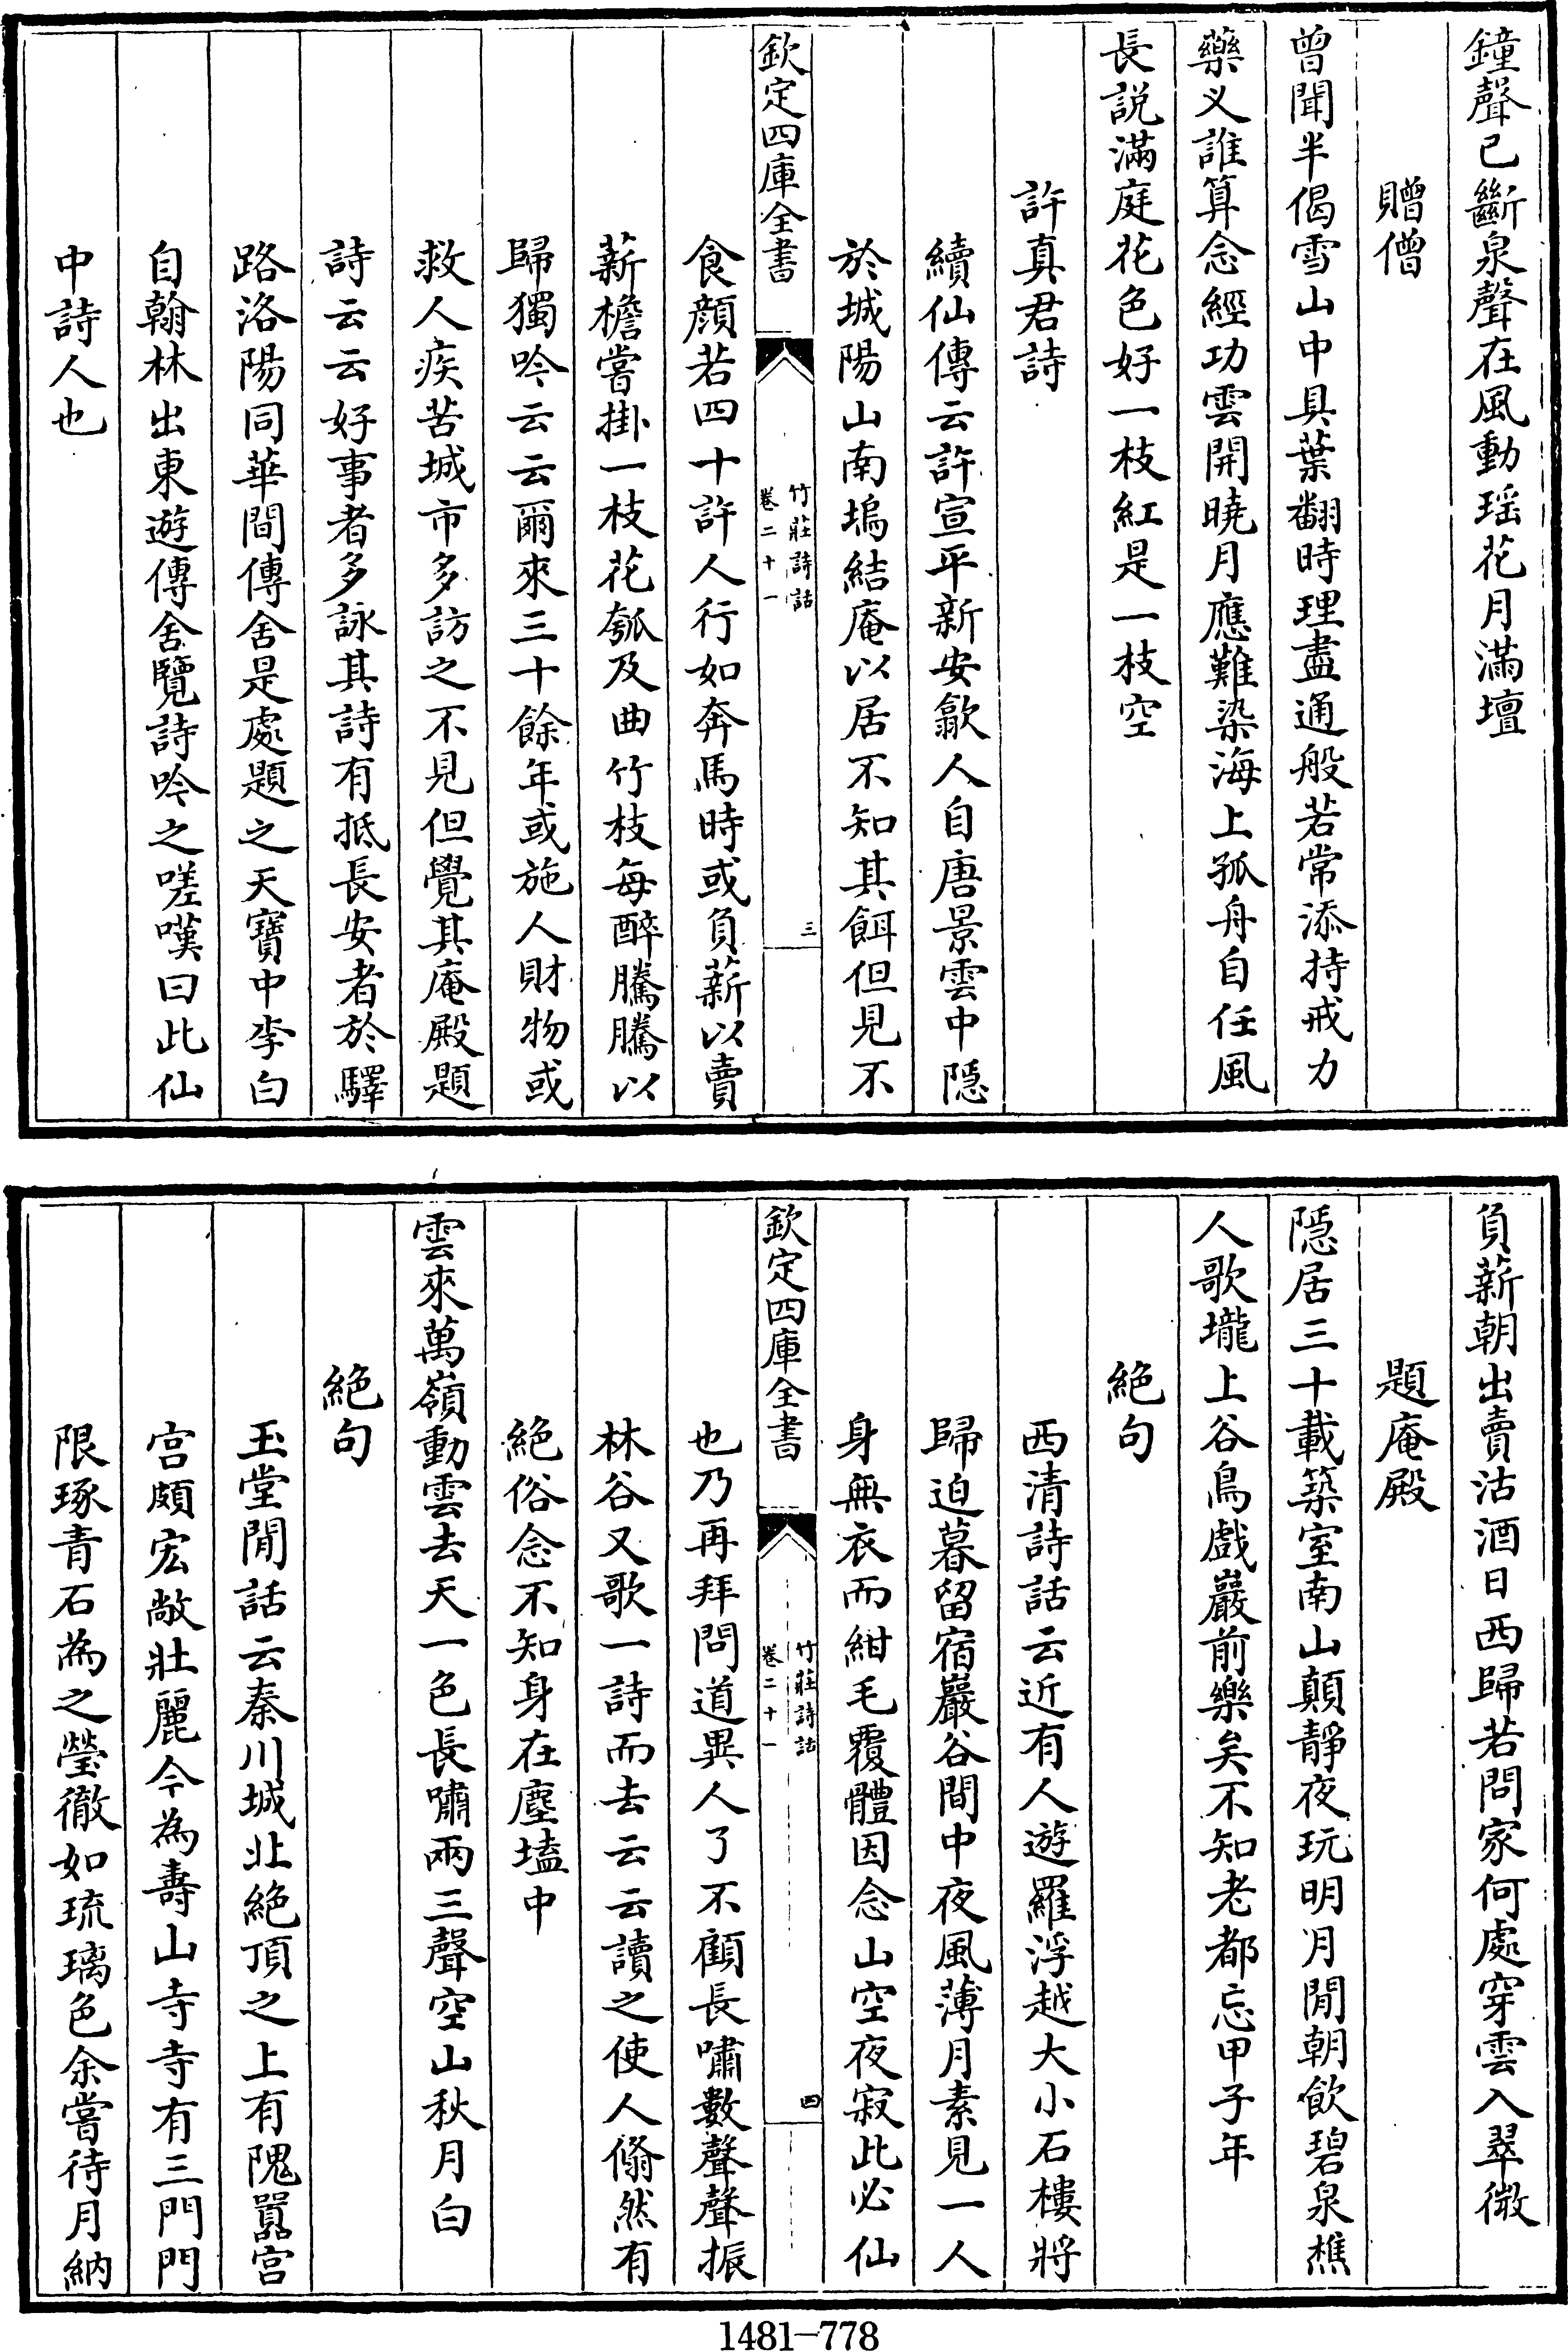 鐘聲已斷泉聲在風動瑶花月滿壇
贈僧
曽聞半偈雪山中具葉翻時理盡通般若常添持戒力
藥义誰算念經功雲開曉月應難染海上孤舟自任風
長説滿庭花色好一枝紅是一枝空
許真君詩
續仙傳云許宣平新安歙人自唐景雲中隱
於城陽山南塢結庵以居不知其餌但見不
欽定四庫全書
竹莊詩話
卷二十一
三
食顔若四十許人行如奔馬時或負薪以賣
薪檐嘗掛一枝花瓠及曲竹枝每醉騰騰以
歸獨吟云云爾來三十餘年或施人財物或
救人疾苦城市多訪之不見但覺其庵殿題
詩云云好事者多詠其詩有抵長安者於驛
路洛陽同華間傳舍是處題之天寶中李白
自翰林出東遊傳舍覽詩吟之嗟嘆曰此仙
中詩人也
負薪朝出賣沽酒日西歸若問家何處穿雲入翠微
題庵殿
隱居三十載築室南山顛靜夜玩明月閒朝飲碧泉樵
人歌壠上谷鳥戲巖前樂矣不知老都忘甲子年
絶句
西清詩話云近有人遊羅浮越大小石樓將
歸迫暮留宿巖谷間中夜風薄月素見一人
身無衣而紺毛覆體因念山空夜寂此必仙
欽定四庫全書
竹莊詩話
卷二十一
四
也乃再拜問道異人了不顧長嘯數聲聲振
林谷又歌一詩而去云云讀之使人翛然有
絶俗念不知身在塵壒中
雲來萬嶺動雲去天一色長嘯兩三聲空山秋月白
絶句
玉堂閒話云秦川城北絶頂之上有隗囂宫
宫頗宏敞壯麗今為壽山寺寺有三門門
限琢青石為之瑩徹如琉璃色余嘗待月納
1481-778